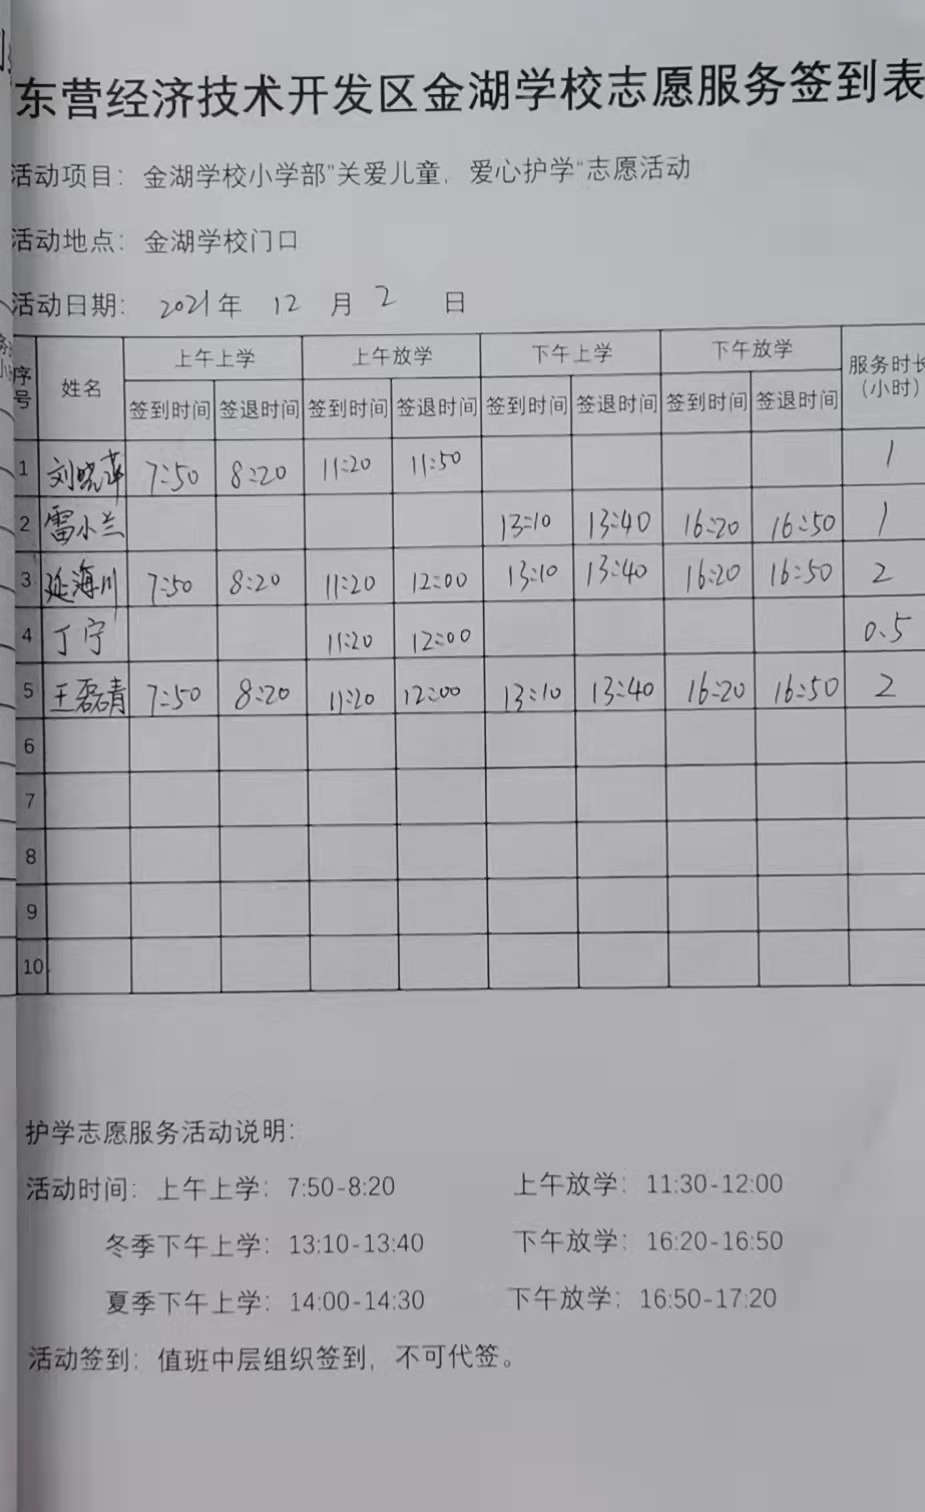 东营经济技术开发区金湖学校志愿服务签到表
活动项目：金湖学校小学部"关爱儿童，爱心护学"志愿活动
活动地点：金湖学校门口
活动日期： 2021年 12 月 2 日
序号 姓名 上午上学 上午放学 下午上学 下午放学 服务时长（小时）
签到时间 签退时间 签到时间 签退时间 签到时间 签退时间 签到时间 签退时间
1 刘晓萍 7:50 8:20 11:20 11:50 1
2 雷小兰 13:10 13:40 16:20 16:50 1
3 延海川 7:50 8:20 11:20 12:00 13:10 13:40 16:20 16:50 2
4 丁宁 11:20 12:00 0.5
5 王磊青 7:50 8:20 11:20 12:00 13:10 13:40 16:20 16:50 2
6
7
8
9
10
护学志愿服务活动说明：
活动时间：上午上学：7:50-8:20 上午放学：11:30-12:00
冬季下午上学：13:10-13:40 下午放学：16:20-16:50
夏季下午上学：14:00-14:30 下午放学：16:50-17:20
活动签到：值班中层组织签到，不可代签。